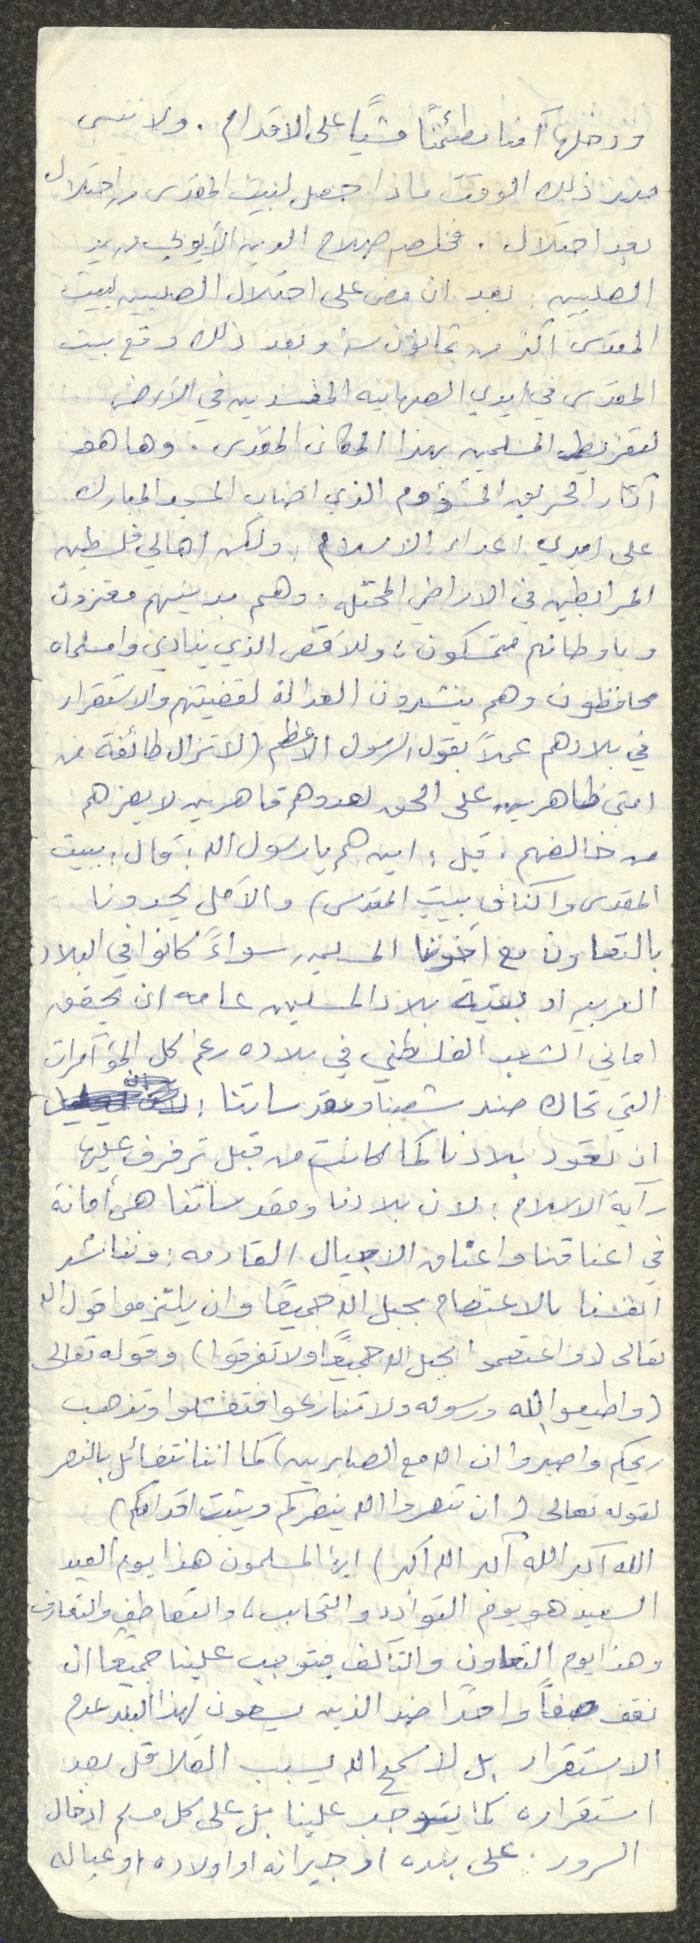 ودخلها آمنا مطمئنًا مشيًا على الاقدام . ولا ننسى
منذ ذلك الوقت ماذا حصل لبيت المقدس من احتلال
بعد احتلال . فخلصه صلاح الدين الأيوبي من يد
الصلبيين . بعد ان مضى على احتلال الصلبيين لبيت
المقدس اكثر من ثمانون سنة وبعد ذلك وقع بيت
المقدس في ايدي الصهاينه المفسدين في الأرض
لتفريط المسلمين بهذا المكان المقدس . وها هو
آثار الحريق المشؤوم الذي اصاب المسجد المبارك
على ايدي اعداء الاسلام ، ولكن اهالي فلسطين
المرابطين في الاراضي المحتله . وهم بدينهم معتزون
وباوطانهم متمسكون ، وللاقصى الذي ينادي وااسلماه
محافظون وهم ينشدون العدالة لقضيتهم والاستقرار
في بلادهم عملاً بقول الرسول الاعظم (لا تزال طائفة من
امتي ظاهرين على الحق لعدوهم قاهرين لا يضرهم
من خالفهم . قيل : اين هم يا رسول الله ؛ قال : ببيت
المقدس واكناف بيت المقدس) والأمل يحدونا
بالتعاون مع اخوتنا المسلمين سواءً كانوا في البلاد
العربيه او بقية بلاد المسلمين عامه ان يحقق
اماني الشعب الفلسطيني في بلاده رغم كل المؤآمرات
التي تحاك ضد شعبنا ومقدساتنا ؛
ان تعود بلادنا كما كانت من قبل ترفرف عليها
رآية الاسلام ؛ لان بلادنا ومقدساتنا هي أمانة
في اعناقنا واعناق الاجيال القادمه ؛ ونناشد
انفسنا بالاعتصام بحبل الله جميعًا وان يلتزموا قول الله
تعالى (واعتصموا بحبل الله جميعًا ولا تفرقوا) وقوله تعالى
(واطيعوا الله ورسوله ولا تنازعوا فتفشلوا وتذهب
ريحكم واصبروا ان الله مع الصابرين) كما اننا نتفائل بالنصر
لقوله تعالى (ان تنصروا الله ينصركم ويثبت اقدامكم)
الله اكبر الله اكبر الله اكبر) ايها المسلمون هذا يوم العيد
السعيد هو يوم التوادد والتحابب ، والتعاطف والتعارف
وهذا يوم التعاون والتآلف فيتوجب علينا جميعًا ان
نقف صفاً واحدًا ضد الذين يسعون لهذا البلد عدم
الاستقرار بل لا سمح الله يسبب القلاقل بعد
استقراره كما يتوجب علينا بل على كل مسلم ادخال
السرور . على بلده او جيرانه او اولاده او عياله